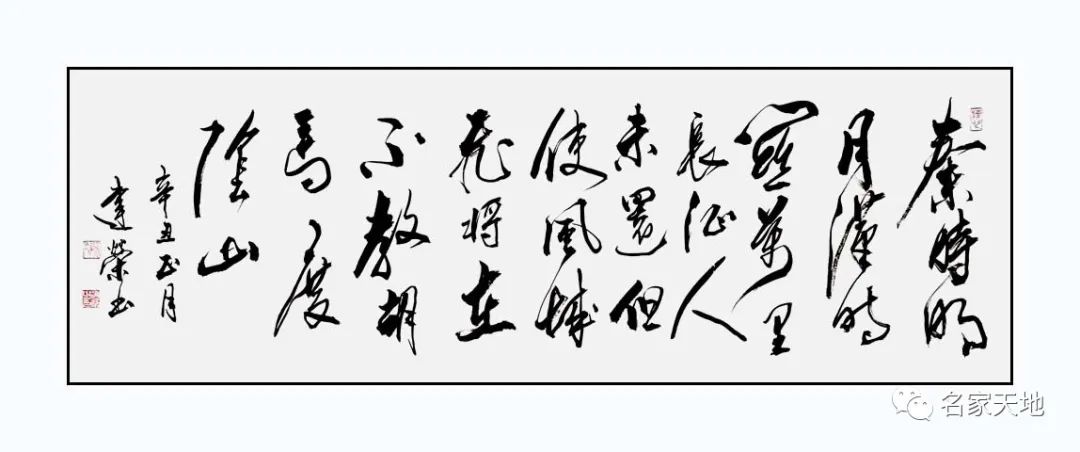 秦時明
月漢時
關萬里
長征人
未還但
使風城
飛將在
不教胡
馬度
陰山
辛丑正月
建榮书
名家天地